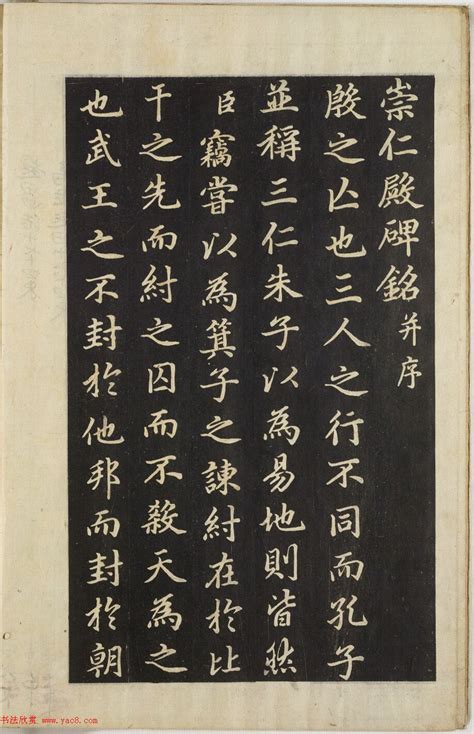 崇仁殿碑銘并序
殷之亾也三人之行不同而孔子
並稱三仁朱子以為易地則皆然
臣竊嘗以為箕子之諫紂在於比
干之先而紂之囚而不殺天為之
也武王之不封於他邦而封於朝
书法欣赏 www.yac8.com